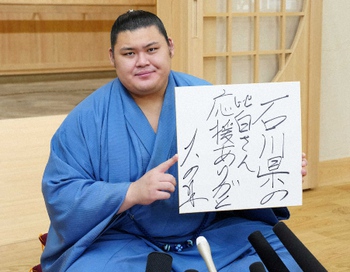 石川県の
皆さん
応援ありがとう
大の里